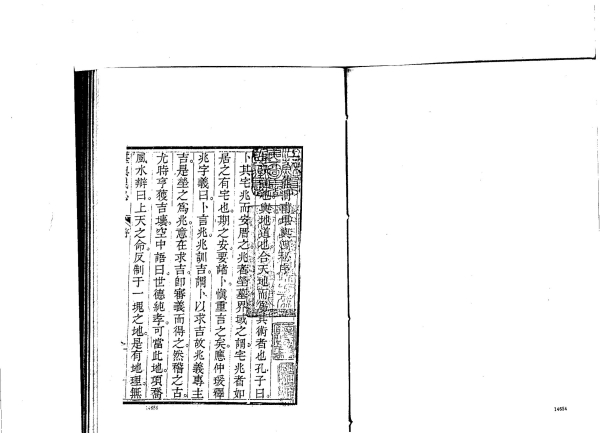 堪輿
堪天道也輿地道也合天地而爲其術者也孔子曰
卜其宅兆而安厝之兆者塋墓界域之謂宅兆者如
居之有宅也期之安要諸卜愼重言之矣應仲瑗釋
兆字義曰卜言兆兆訓吉謂卜以求吉故兆義專主
吉是塋之爲兆意在求吉卽審義而得之然稽之古
尤時亨獲吉壤空中語曰世德純孝可當此地項喬
風水辯曰上天之命反制于一塊之地是有地理無
14683
14684